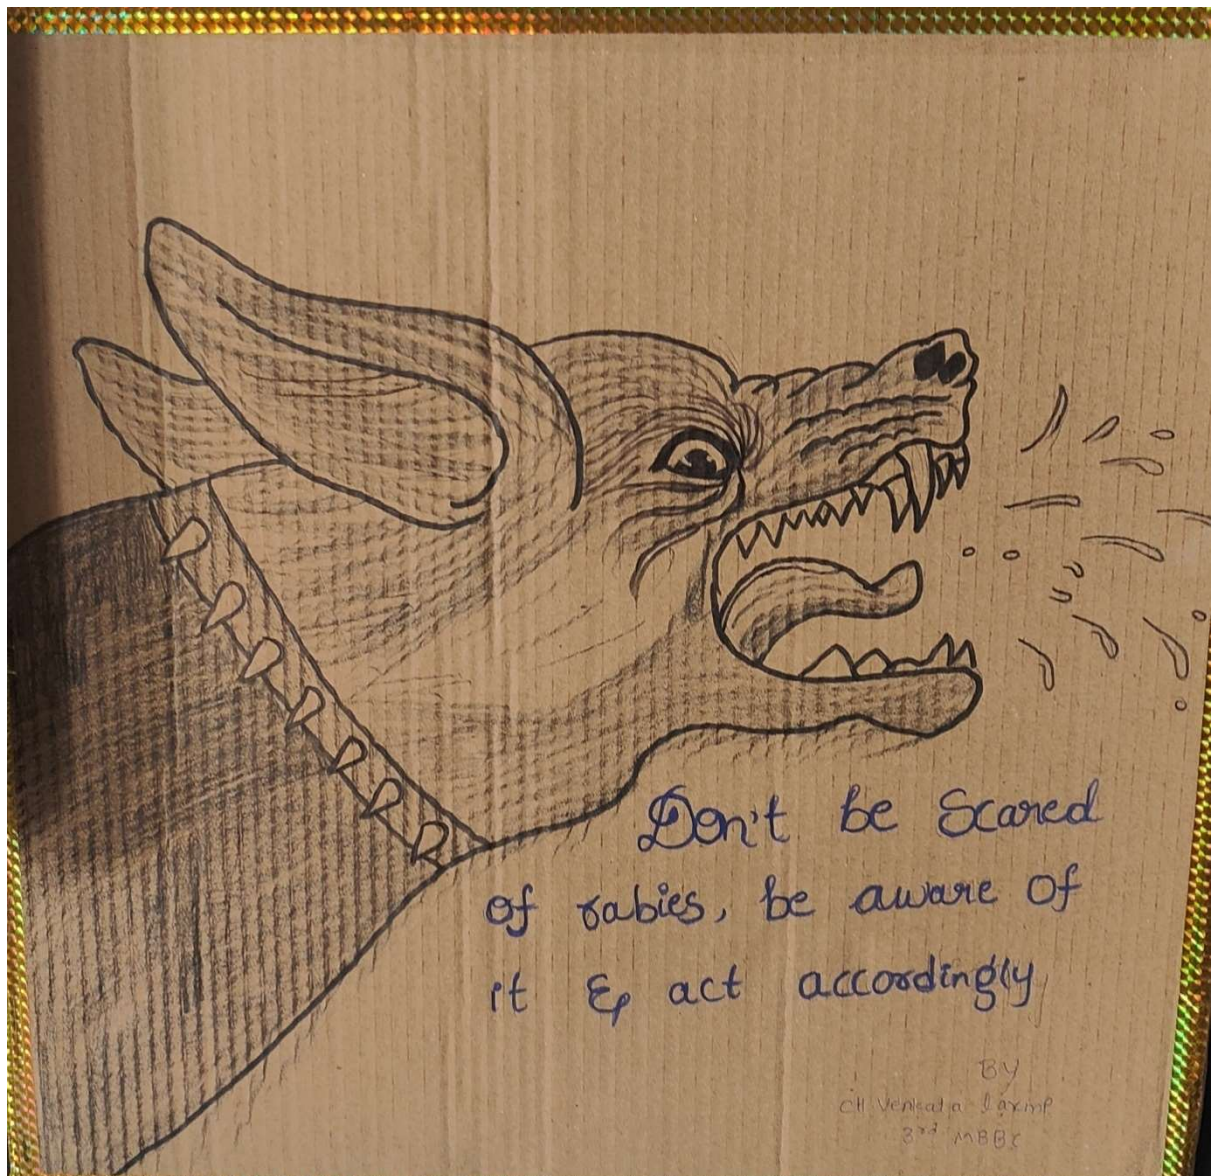 Don't be Scared
of rabies, be aware of
it & act accordingly
BY
CH Venkata
3rd MBBS